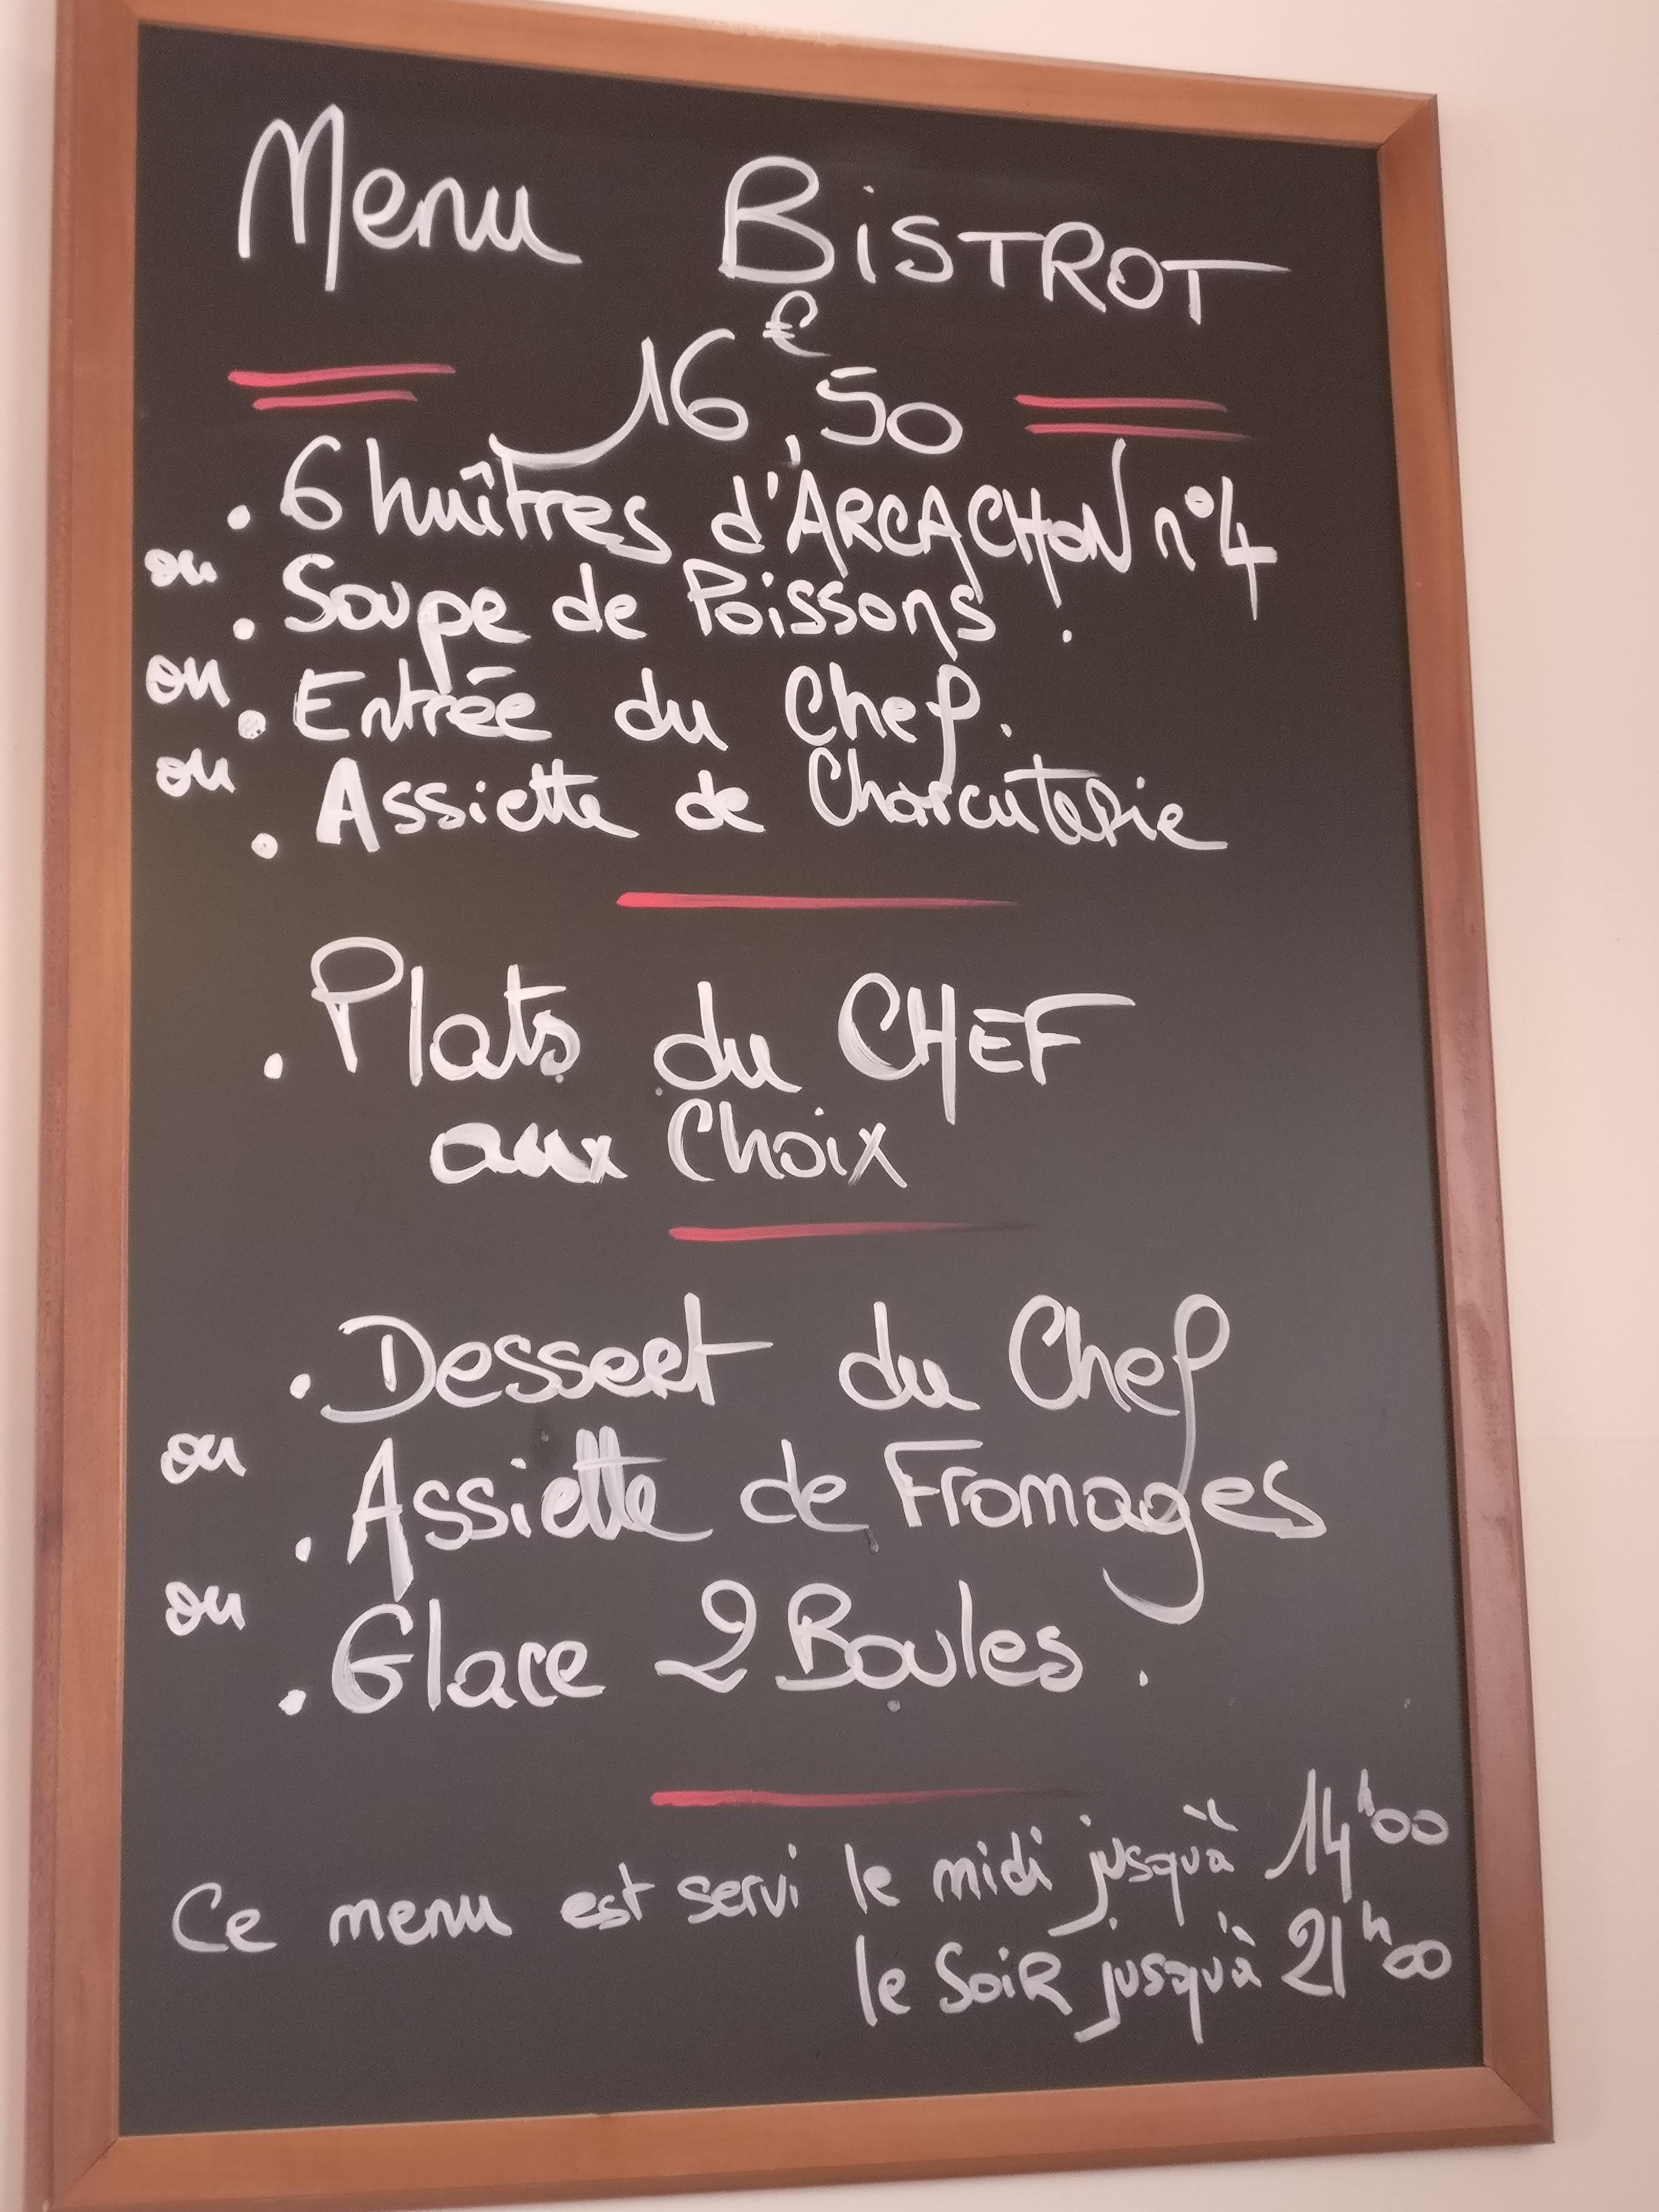 Menu BiSTROT
16€,50
. 6 huîtres d'ARCACHON n°4
ou
. Soupe de Poissons .
ou
. Entrée du Chef.
ou
. Assiette de Charcuterie
. Plats du CHEF
aux Choix
. Dessert du Chef
ou
. Assiette de Fromages
ou
. Glace 2 Boules .
Ce menu est servi le midi jusqu'à 14h00
le SoiR jusqu'à 21h00